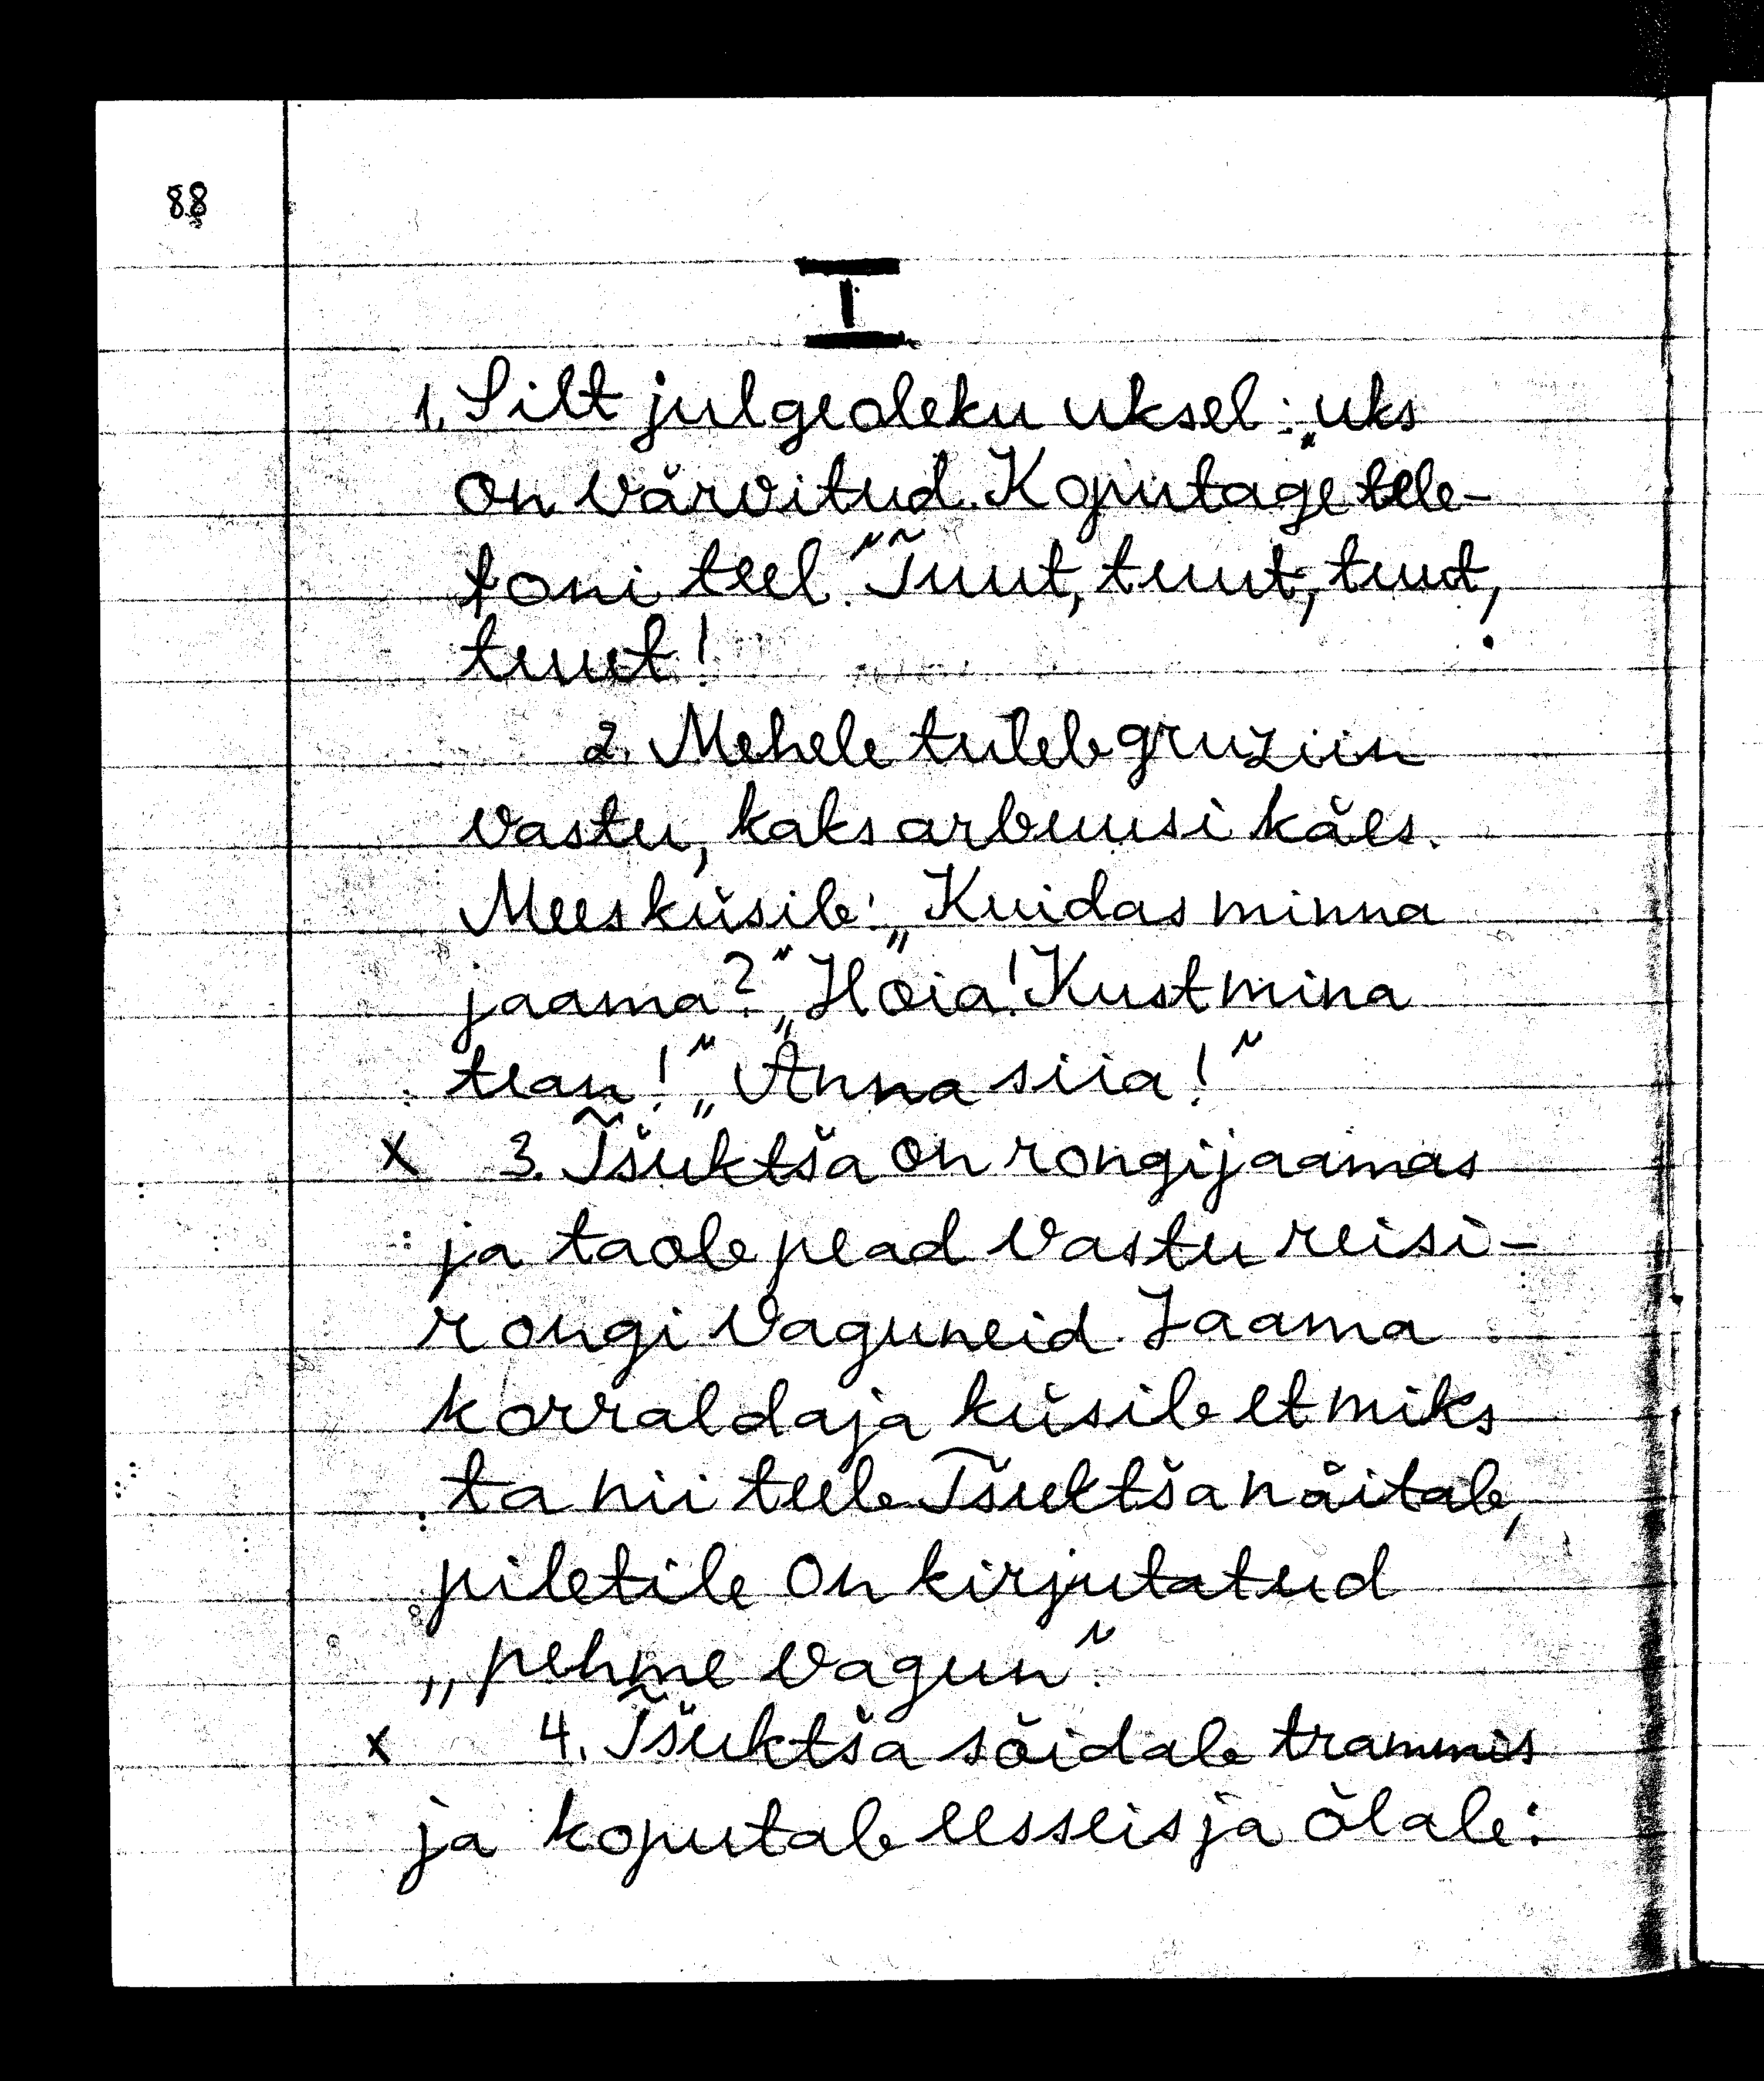 88
I
1. Silt julgeoleku uksel: „uks
on värvitud. Koputage tele-
foni teel." Tuut, tuut, tuut,
tuut!
2. Mehele tuleb gruziin
vastu, kaks arbuusi käes.
Mees küsib: „Kuidas minna
jaama?" „Hoia! Kust mina
tean!" „Anna siia!"
x 3. Tšuktša on rongijaamas
ja taob pead vastu reisi-
rongi vaguneid. Jaama
korraldaja küsib et miks
ta nii teeb. Tšuktša näitab,
piletile on kirjutatud
„pehme vagun".
x 4. Tšuktša sõidab trammis
ja koputab eesseisja õlale: